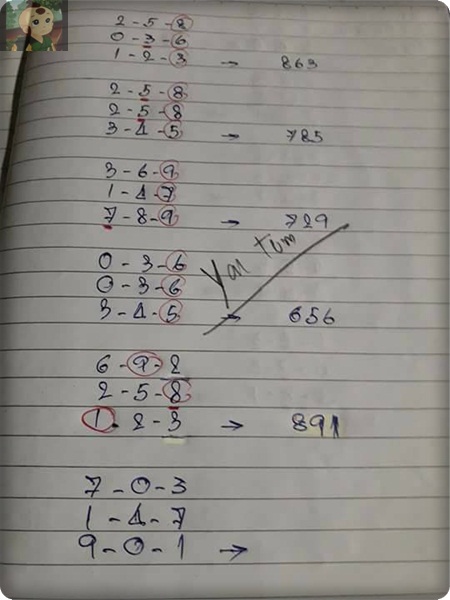 2-5-8
0-3-6
1-2-3 → 863
2-5-8
2-5-8
3-4-5 → 785
3-6-9
1-4-7
7-8-9 → 729
Yan Tum
0-3-6
0-3-6
3-4-5 → 656
6-9-2
2-5-8
1-2-3 → 891
7-0-3
1-4-7
9-0-1 →